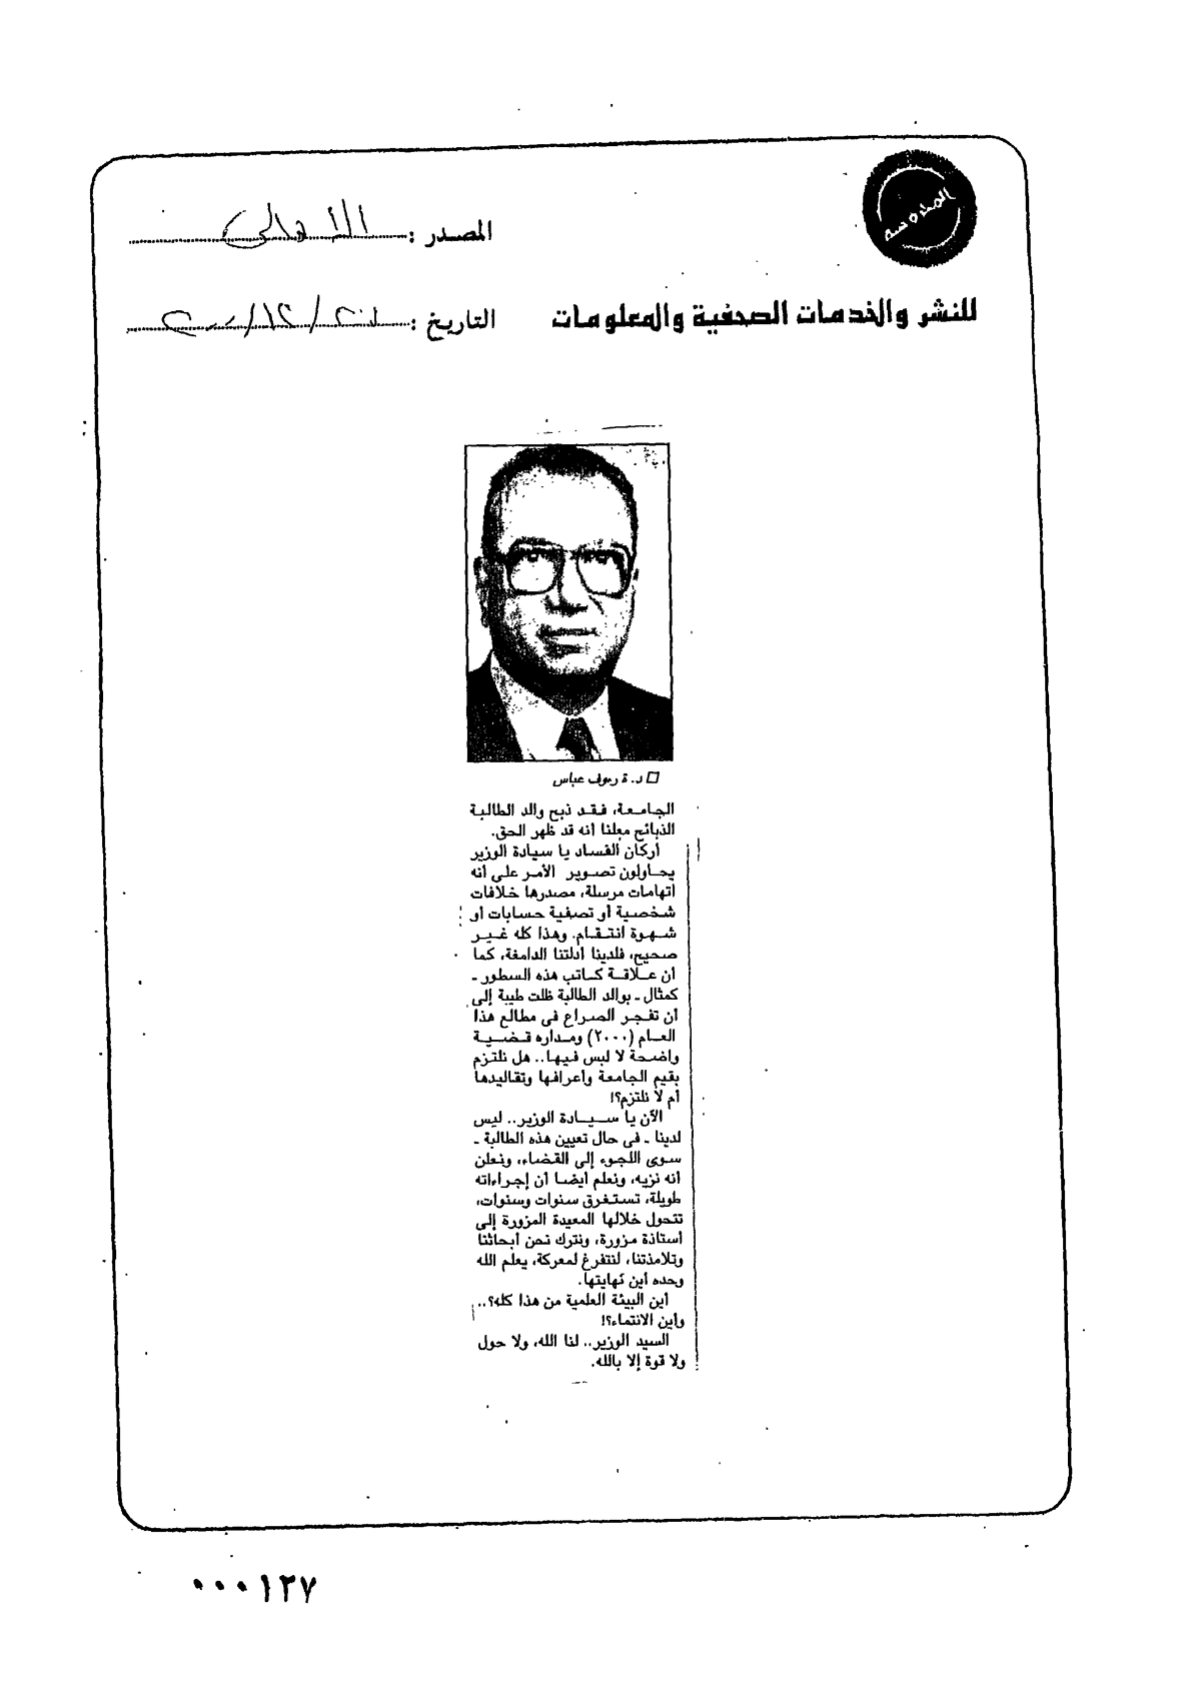 المحروسة
المصدر : الأهالى
للنشر والخدمات الصحفية والمعلومات
التاريخ : ٢٠ / ١٢ / ٢٠٠٠
□ د. ة رءوف عباس
الجامعة، فقد ذبح والد الطالبة
الذبائح معلنا أنه قد ظهر الحق.
أركان الفساد يا سيادة الوزير
يحاولون تصوير الأمر على أنه
اتهامات مرسلة، مصدرها خلافات
شخصية أو تصفية حسابات أو
شهوة انتقام. وهذا كله غير
صحيح، فلدينا أدلتنا الدامغة، كما
أن علاقة كاتب هذه السطور ـ
كمثال ـ بوالد الطالبة ظلت طيبة إلى
أن تفجر الصراع فى مطالع هذا
العام (٢٠٠٠) ومداره قضية
واضحة لا لبس فيها.. هل نلتزم
بقيم الجامعة وأعرافها وتقاليدها
أم لا نلتزم؟!
الآن يا سيادة الوزير.. ليس
لدينا ـ فى حال تعيين هذه الطالبة ـ
سوى اللجوء إلى القضاء، ونعلن
أنه نزيه، ونعلم أيضا أن إجراءاته
طويلة، تستغرق سنوات وسنوات،
تتحول خلالها المعيدة المزورة إلى
أستاذة مزورة، ونترك نحن أبحاثنا
وتلامذتنا، لنتفرغ لمعركة، يعلم الله
وحده أين نهايتها.
أين البيئة العلمية من هذا كله؟..
وأين الانتماء؟!
السيد الوزير.. لنا الله، ولا حول
ولا قوة إلا بالله.
٠٠٠١٢٧